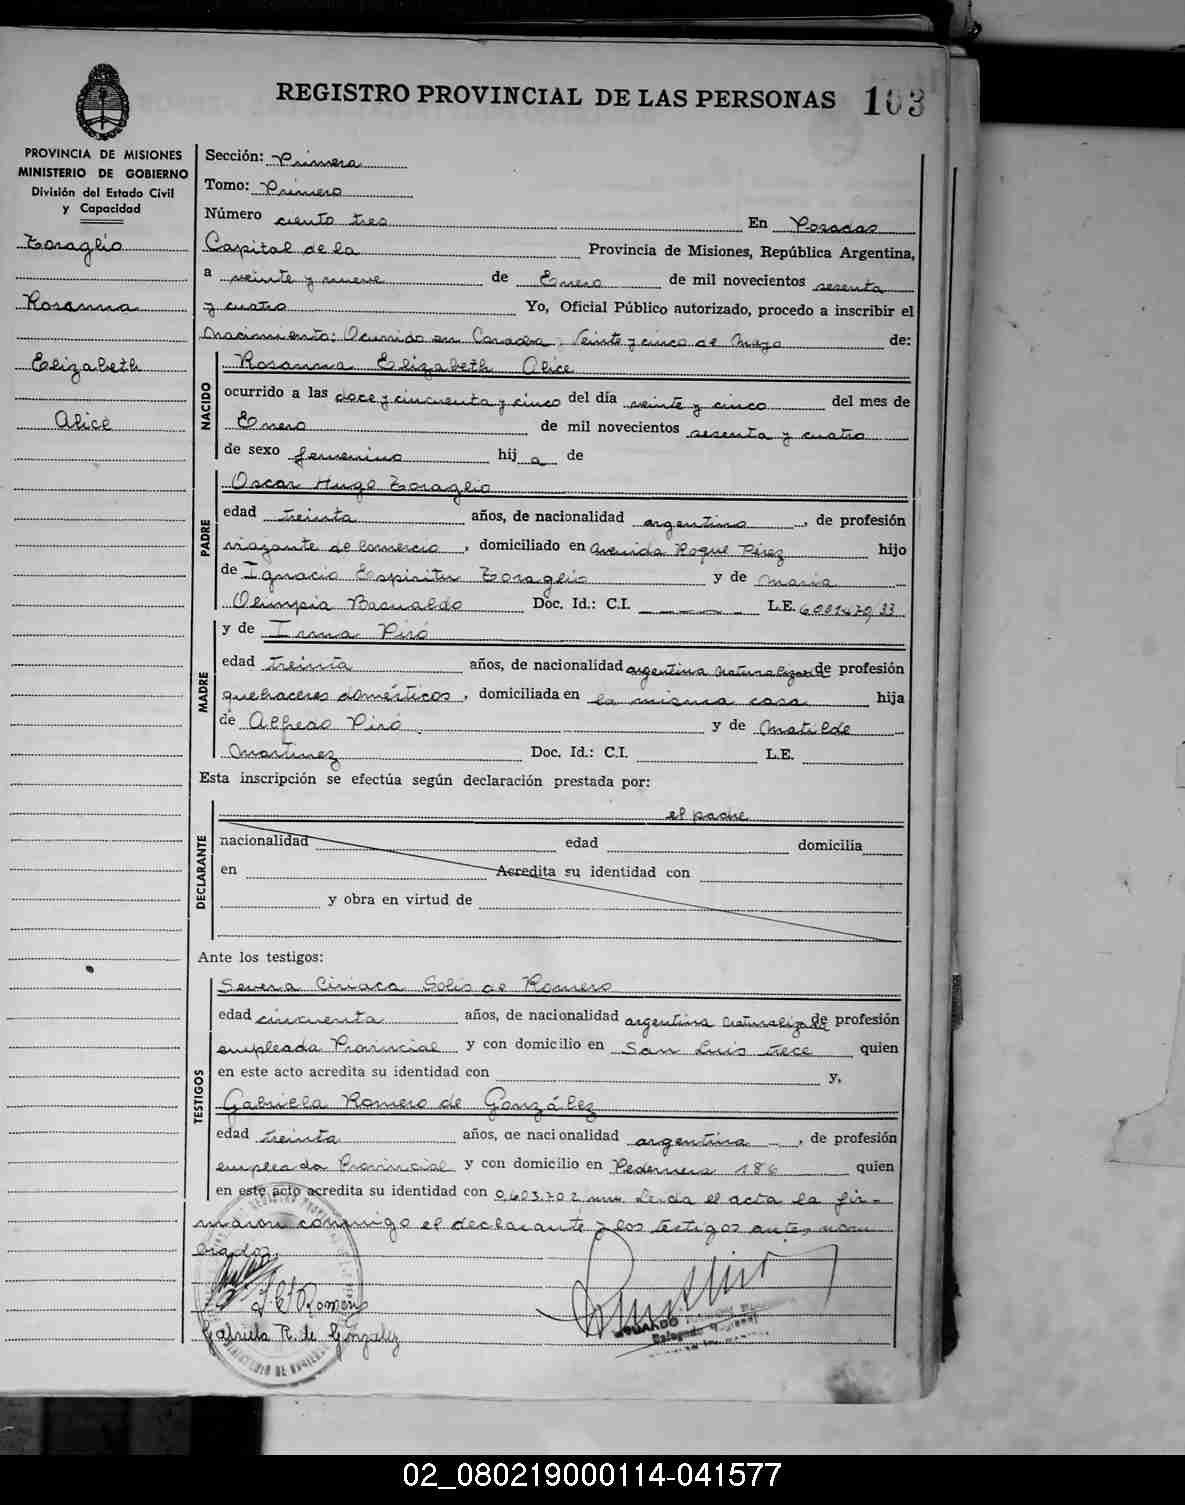 REGISTRO PROVINCIAL DE LAS PERSONAS 103
PROVINCIA DE MISIONES
MINISTERIO DE GOBIERNO
División del Estado Civil
y Capacidad
Zoraglio
Rosanna
Elizabeth
Alice
Sección: Primera
Tomo: Primero
Número ciento tres En Posadas
Capital de la Provincia de Misiones, República Argentina,
a veinte y nueve de Enero de mil novecientos sesenta
y cuatro Yo, Oficial Público autorizado, procedo a inscribir el
Nacimiento: Ocurrido en Veinte y cinco de Mayo de:
NACIDO
Rosanna Elizabeth Alice
ocurrido a las doce y cincuenta y cinco del día veinte y cinco del mes de
Enero de mil novecientos sesenta y cuatro
de sexo femenino hij a de
PADRE
Oscar Hugo Zoraglio
edad treinta años, de nacionalidad argentino, de profesión
viajante de Comercio, domiciliado en Avenida Roque Pérez hijo
de Ignacio Espiritu Zoraglio y de Maria
Olimpia Basualdo Doc. Id.: C.I. L.E.
MADRE
y de Irma Piró
edad treinta años, de nacionalidad argentina naturalizada de profesión
quehaceres domésticos, domiciliada en la misma casa hija
de Alfredo Piró y de Matilde
Martinez Doc. Id.: C.I. L.E.
Esta inscripción se efectúa según declaración prestada por:
DECLARANTE
el padre
nacionalidad edad domicilia
en Acredita su identidad con
y obra en virtud de
Ante los testigos:
TESTIGOS
Severa Ciriaca Solis de Romero
edad cincuenta años, de nacionalidad argentina naturalizada de profesión
empleada Provincial y con domicilio en San Luis trece quien
en este acto acredita su identidad con y,
Gabriela Romero de González
edad treinta años, de nacionalidad argentina, de profesión
empleada Provincial y con domicilio en Pedernera 186 quien
en este acto acredita su identidad con 0.603.702 Leida el acta la fir-
maron conmigo el declarante y los testigos antes nom
brados.
Gabriela R. de González
02_080219000114-041577